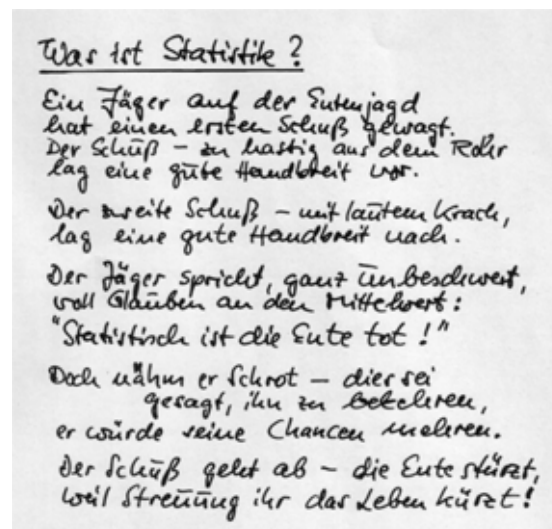 Was ist Statistik?
Ein Jäger auf der Entenjagd
hat einen ersten Schuß gewagt.
Der Schuß – zu hastig aus dem Rohr
lag eine gute Handbreit vor.
Der zweite Schuß – mit lautem Krach,
lag eine gute Handbreit nach.
Der Jäger spricht, ganz unbeschwert,
voll Glauben an den Mittelwert:
"Statistisch ist die Ente tot!"
Doch nähm er Schrot – dies sei
gesagt, ihn zu bekehren,
er würde seine Chancen mehren.
Der Schuß geht ab – die Ente stürzt,
weil Streuung ihr das Leben kürzt!